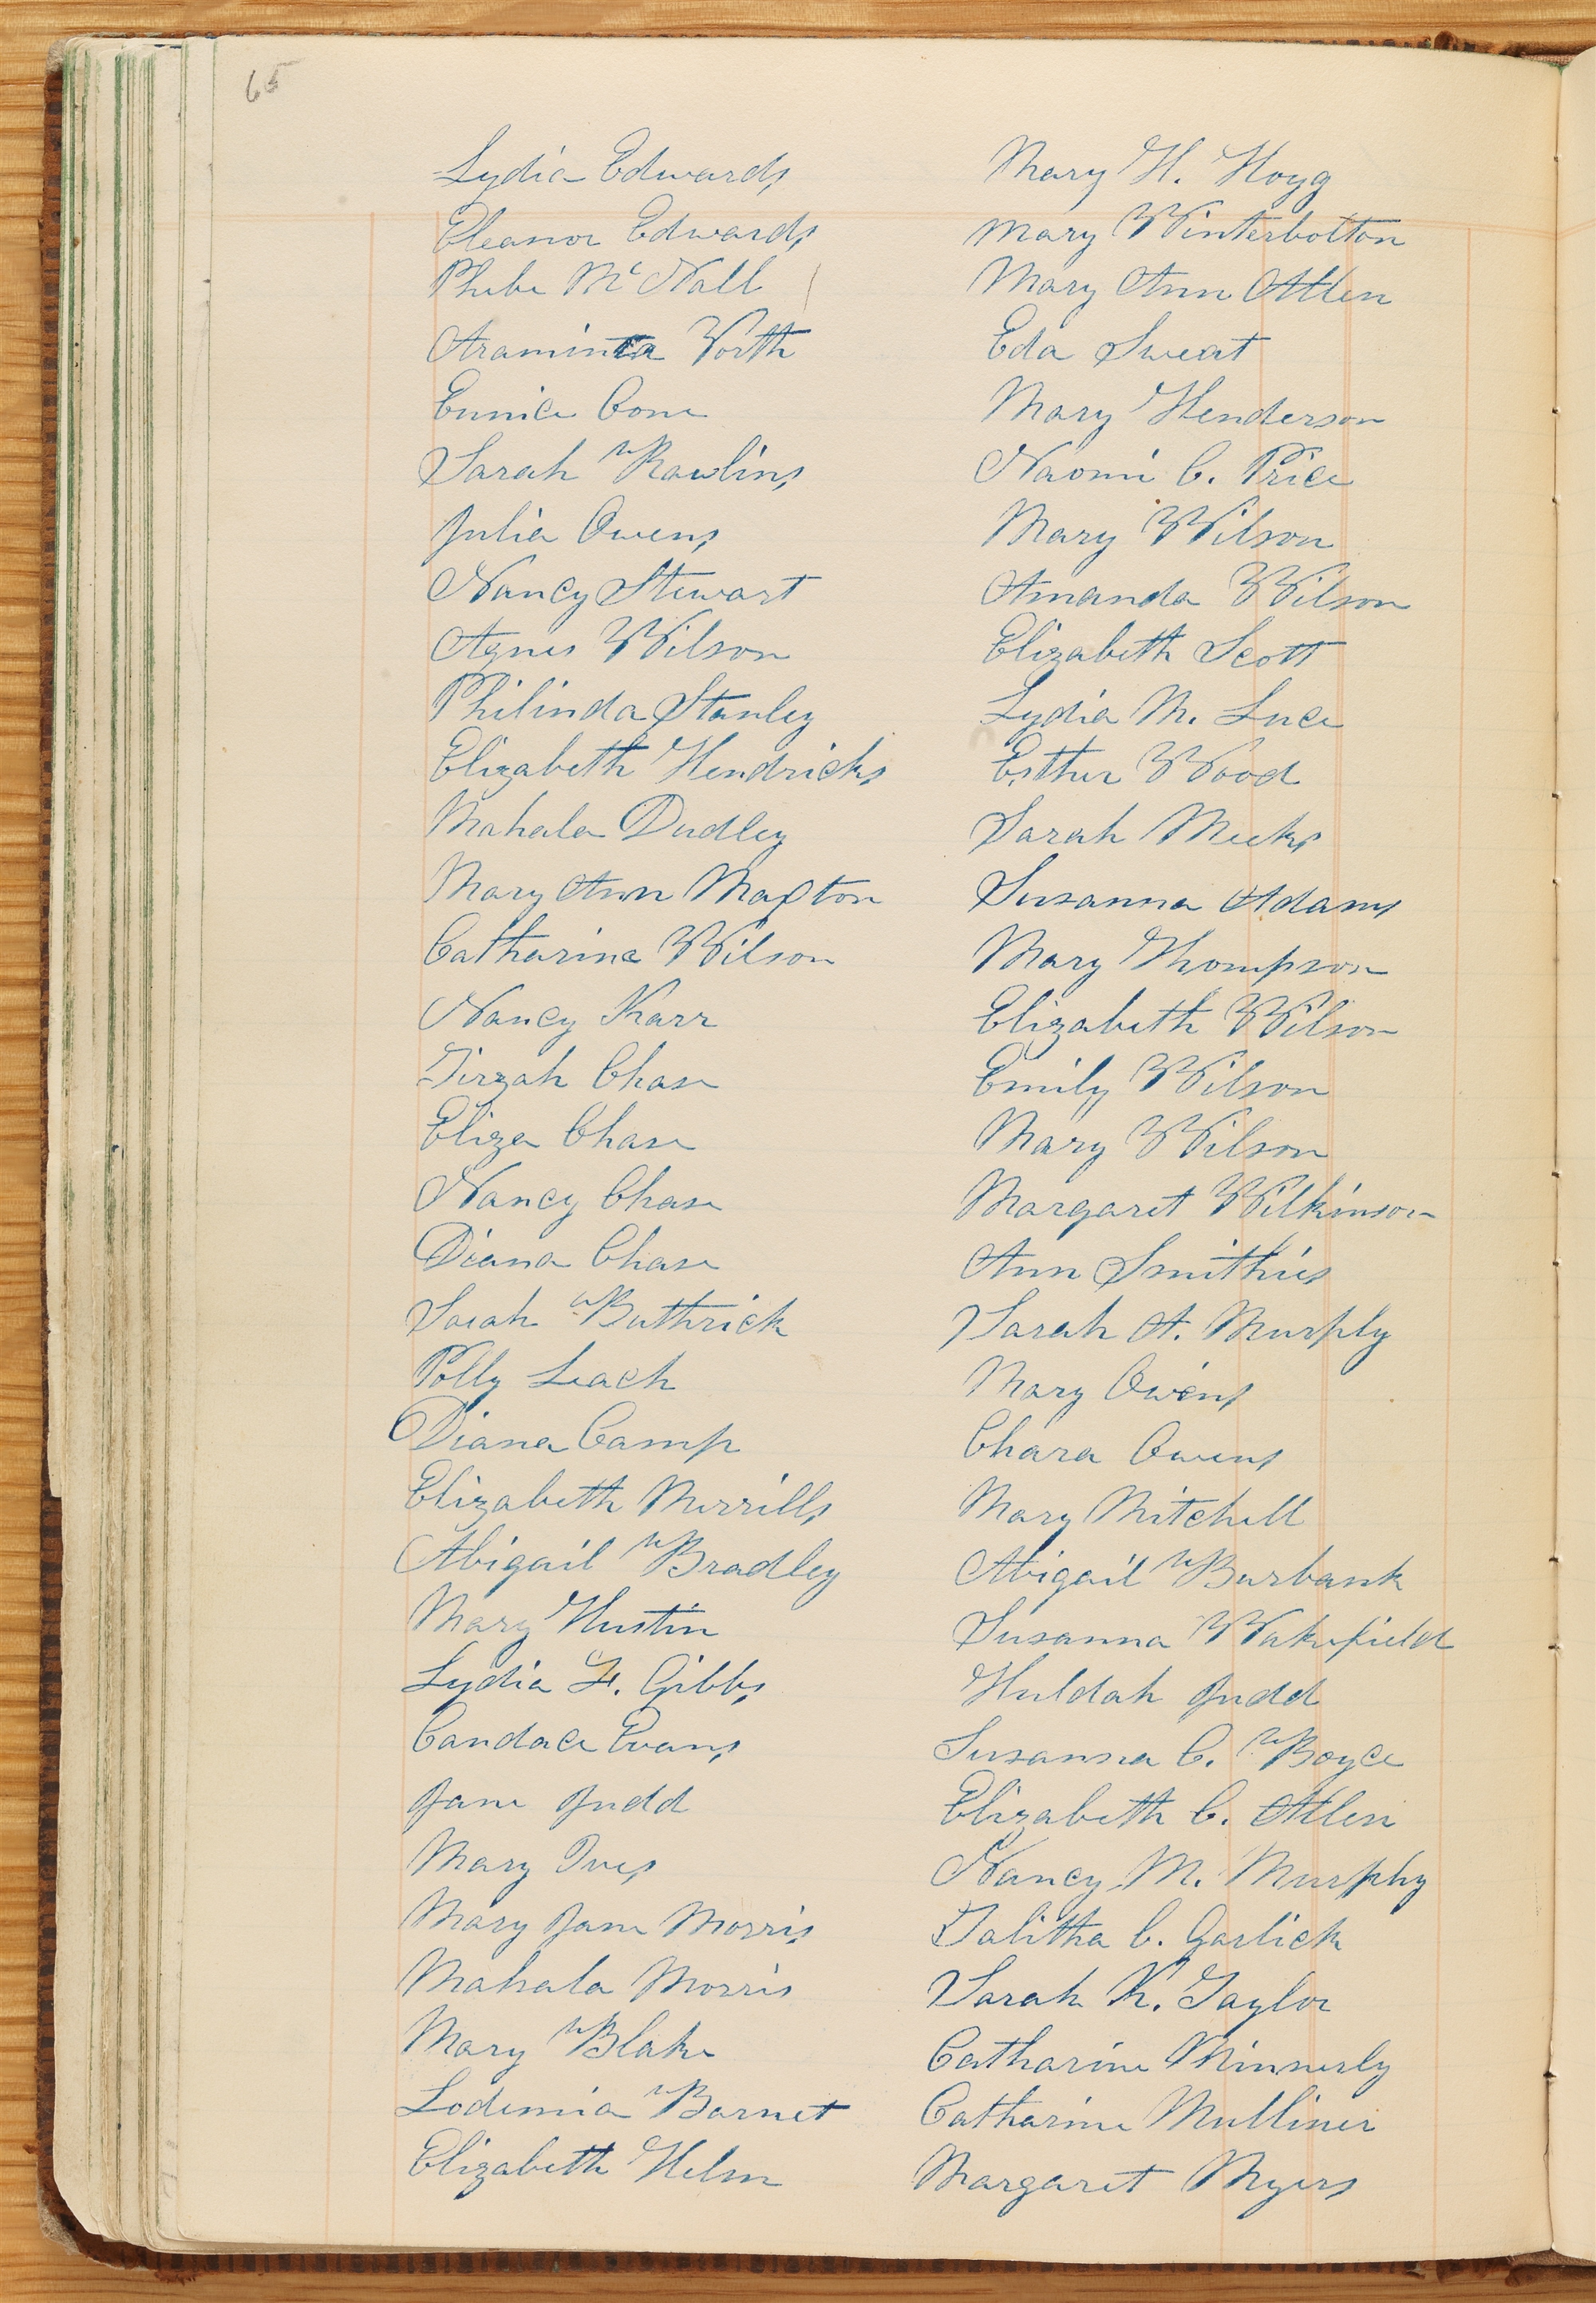 65
Lydia Edwards
Eleanor Edwards
Phebe McNall
Araminta Worth
Eunice Cone
Sarah Rawlins
Julia Owens
Nancy Stewart
Agnes Wilson
Philinda Stanley
Elizabeth Hendricks
Mahala Dudley
Mary Ann Maxton
Catharine Wilson
Nancy Karr
Tirzah Chase
Eliza Chase
Nancy Chase
Diana Chase
Sarah Buthrick
Polly Leach
Diana Camp
Elizabeth Merrills
Abigail Bradley
Mary Hustin
Lydia F. Gibbs
Candace Evans
Jane Judd
Mary Ives
Mary Jane Morris
Mahala Morris
Mary Blake
Lodemia Barnet
Elizabeth Helm
Mary H. Hoyg
Mary Winterbotton
Mary Ann Allen
Eda Sweat
Mary Henderson
Naomi C. Price
Mary Wilson
Amanda Wilson
Elizabeth Scott
Lydia M. Luce
Esther Wood
Sarah Meeks
Susanna Adams
Mary Thompson
Elizabeth Wilson
Emily Wilson
Mary Wilson
Margaret Wilkinson
Ann Smithies
Sarah A. Murphy
Mary Owens
Chara Owens
Mary Mitchell
Abigail Burbank
Susanna Wakefield
Huldah Judd
Susanna C. Boyce
Elizabeth C. Allen
Nancy M. Murphy
Talitha C. Garlick
Sarah K. Taylor
Catharine Minnerly
Catharine Mulliner
Margaret Myers